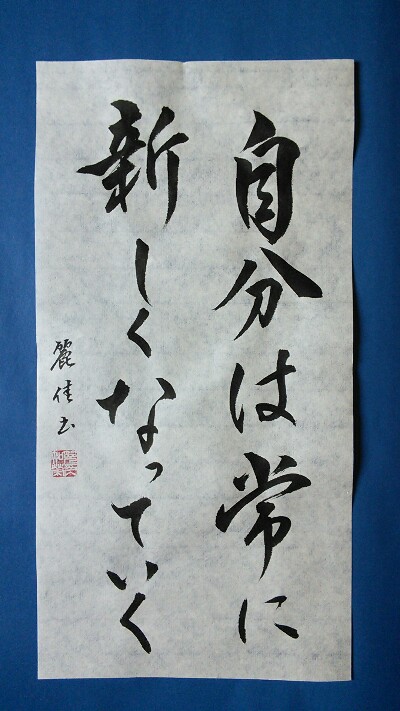 自分は常に
新しくなっていく
麗佳书